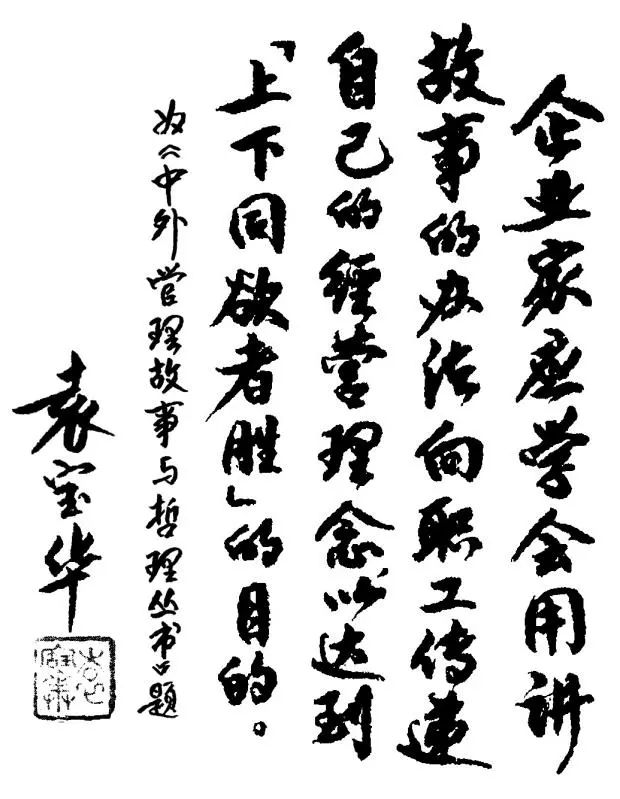 企业家要学会用讲
故事的办法向职工传递
自己的经营理念以达到
「上下同欲者胜」的目的。
为《中外管理故事与哲理丛书》题
袁宝华